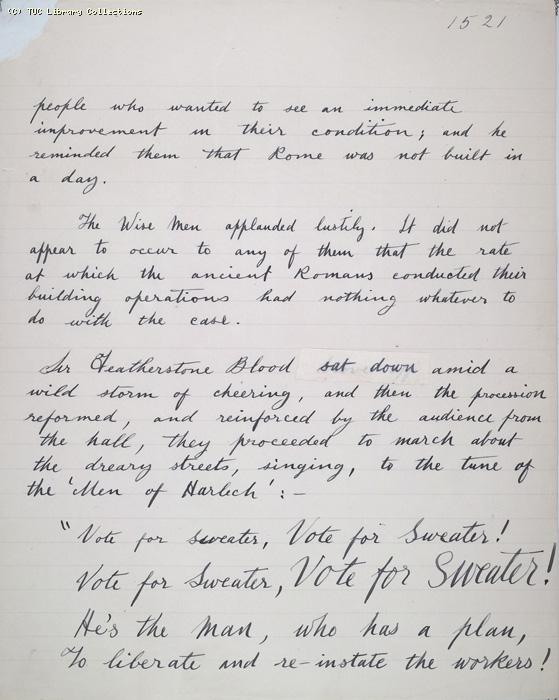 (C) TUC Library Collections
1521
people who wanted to see an immediate
improvement in their condition; and he
reminded them that Rome was not built in
a day.
The Wise Men applauded lustily. It did not
appear to occur to any of them that the rate
at which the ancient Romans conducted their
building operations had nothing whatever to
do with the case.
Sir Featherstone Blood sat down amid a
wild storm of cheering, and then the procession
reformed, and reinforced by the audience from
the hall, they proceeded to march about
the dreary streets, singing, to the tune of
the 'Men of Harlech':-
"Vote for Sweater, Vote for Sweater!
Vote for Sweater, Vote for Sweater!
He's the Man, who has a plan,
To liberate and re-instate the workers!